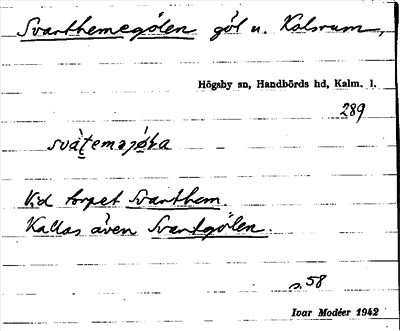 Svarthemegölen göl u. Kalvrum,
Högsby sn, Handbörds hd, Kalm. l.
289
Vid torpet Svarthem.
Kallas även Svartgölen.
s. 58
Ivar Modéer 1942